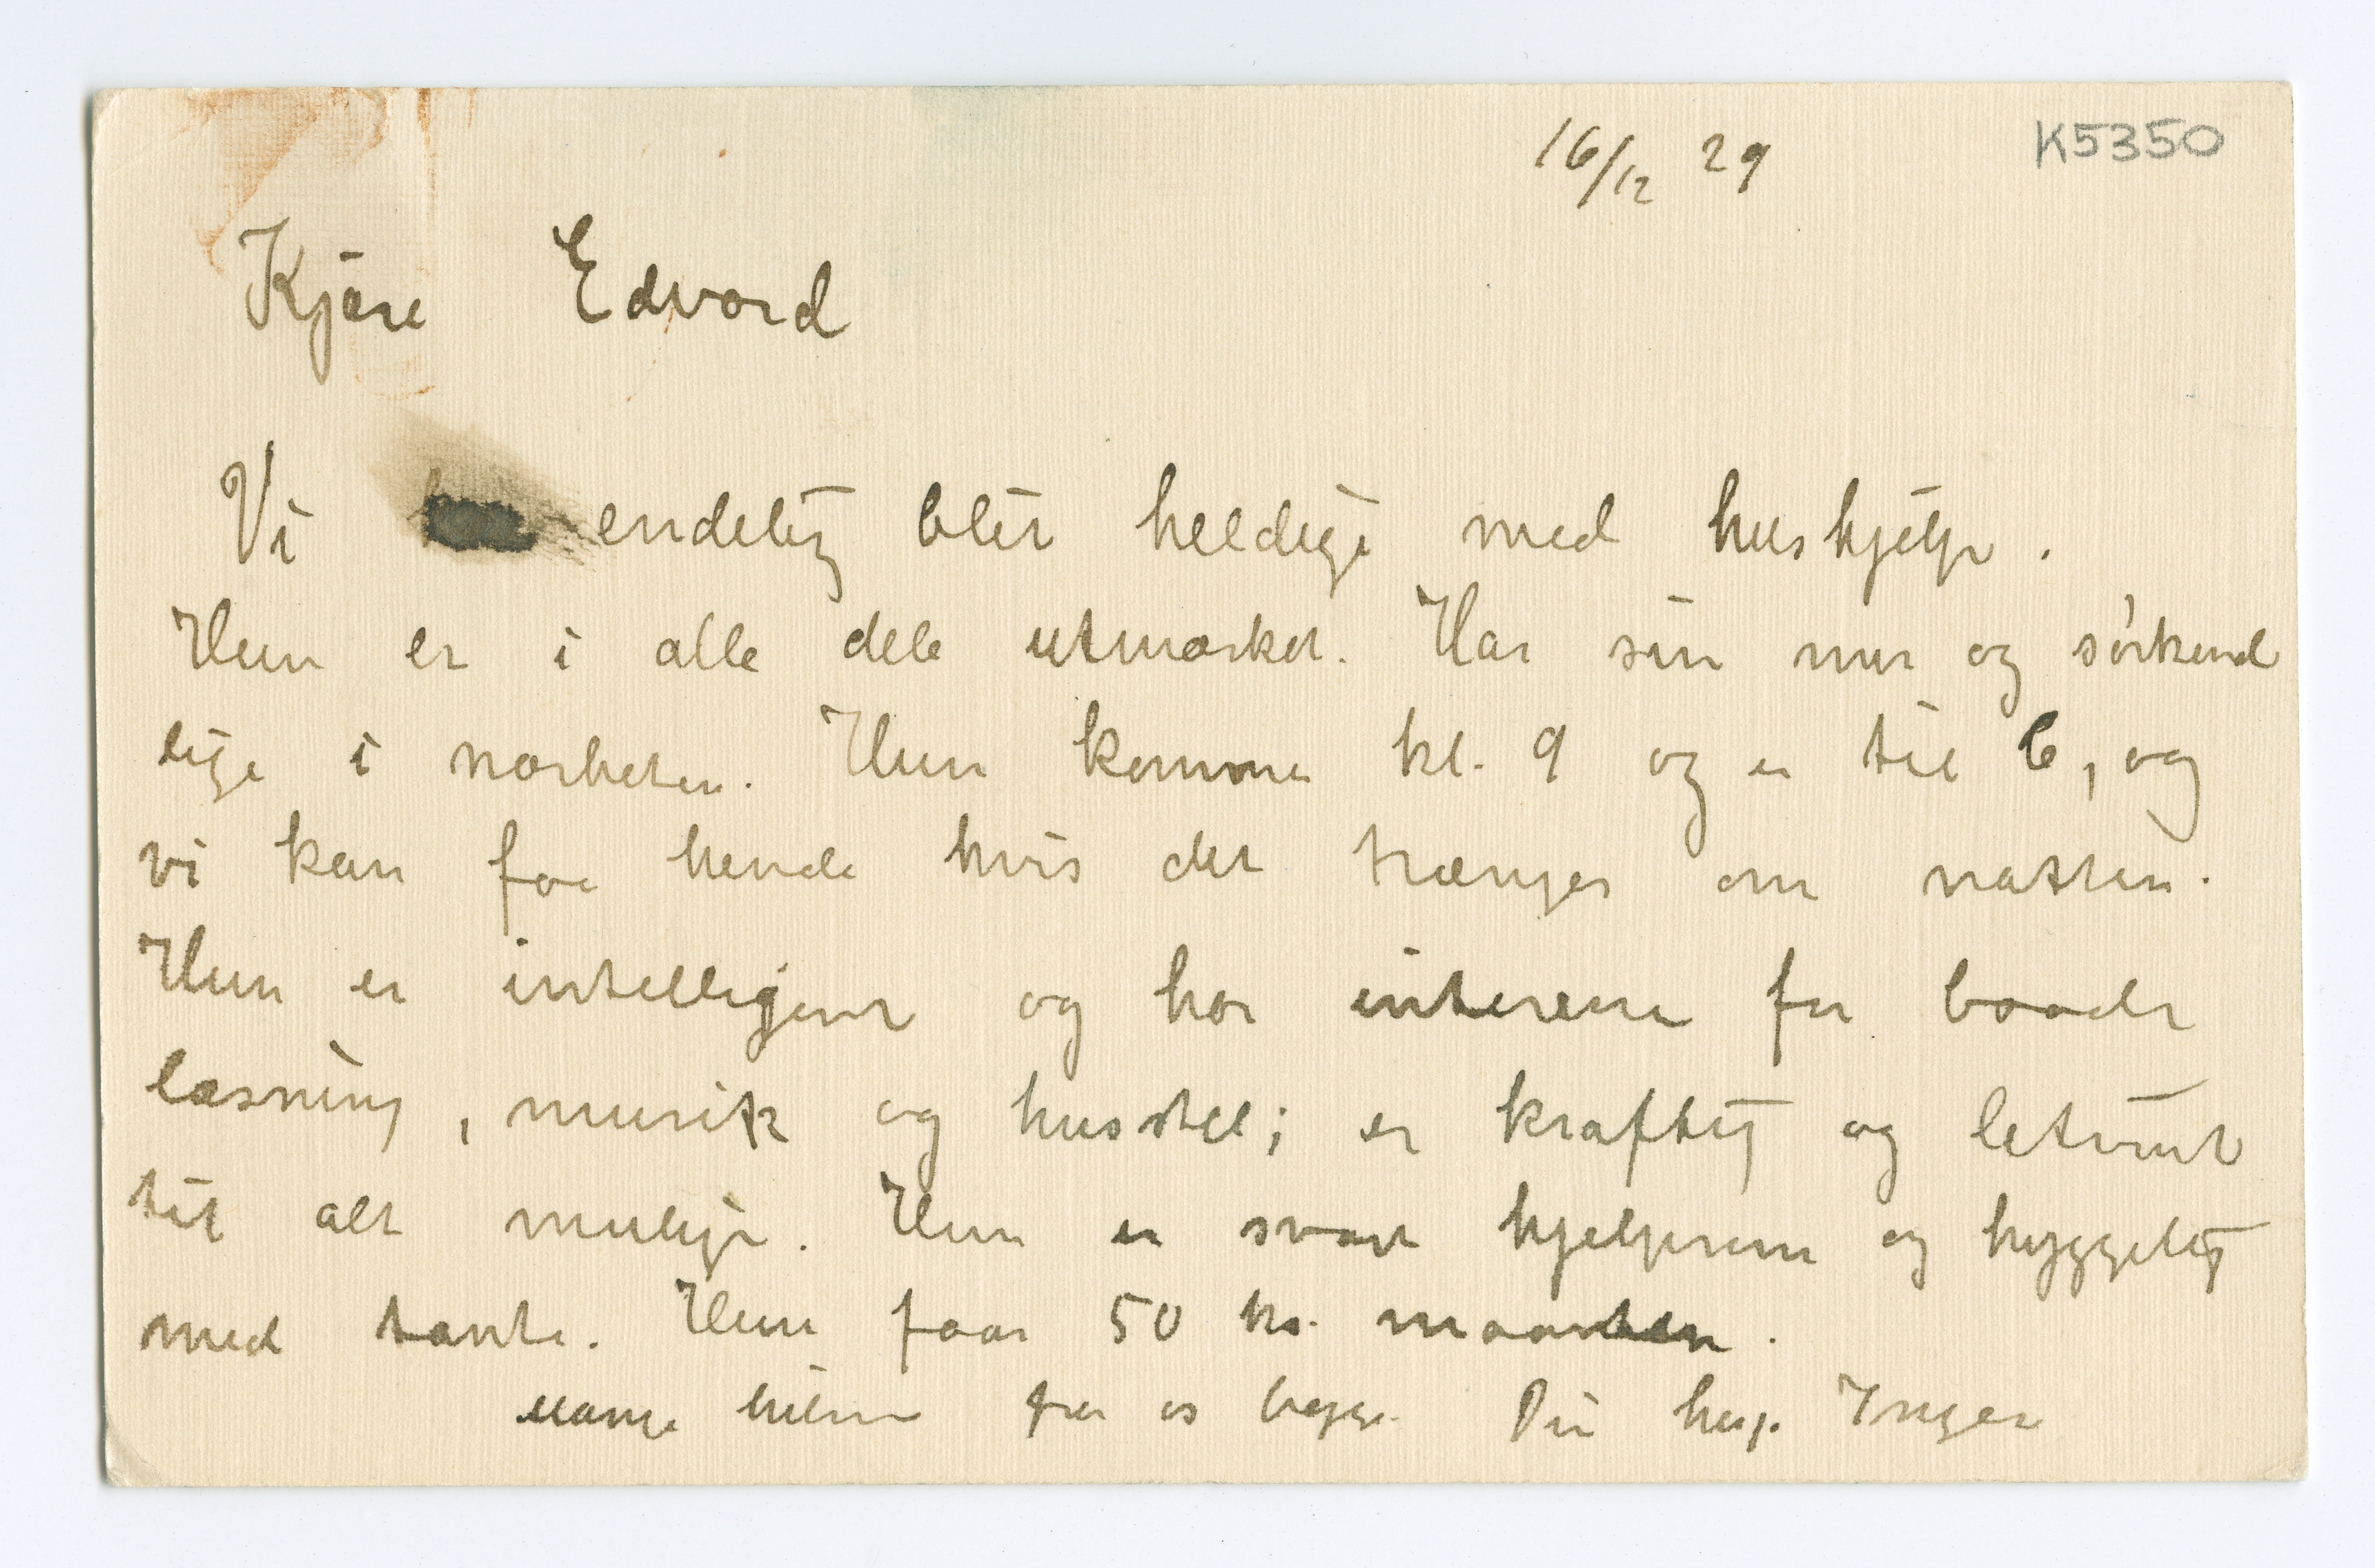 16/12 29
K5350
Kjære Edvard
Vi endelig blit heldige med huskjelp.
Hun er i alle dele utmærket. Har sin mor og søskend
lige i nærheten. Hun kommer kl. 9 og er til 6, og
vi kan faa hende hvis det trænges om natten.
Hun er intelligent og har interesse for baade
læsning, musik og husstel; er kraftig og letvint
til alt mulige. Hun er svært hjelpsom og hyggelig
med tante. Hun faar 50 kr. maaneden.
Mange hilsen fra os begge. Din heng. Inger